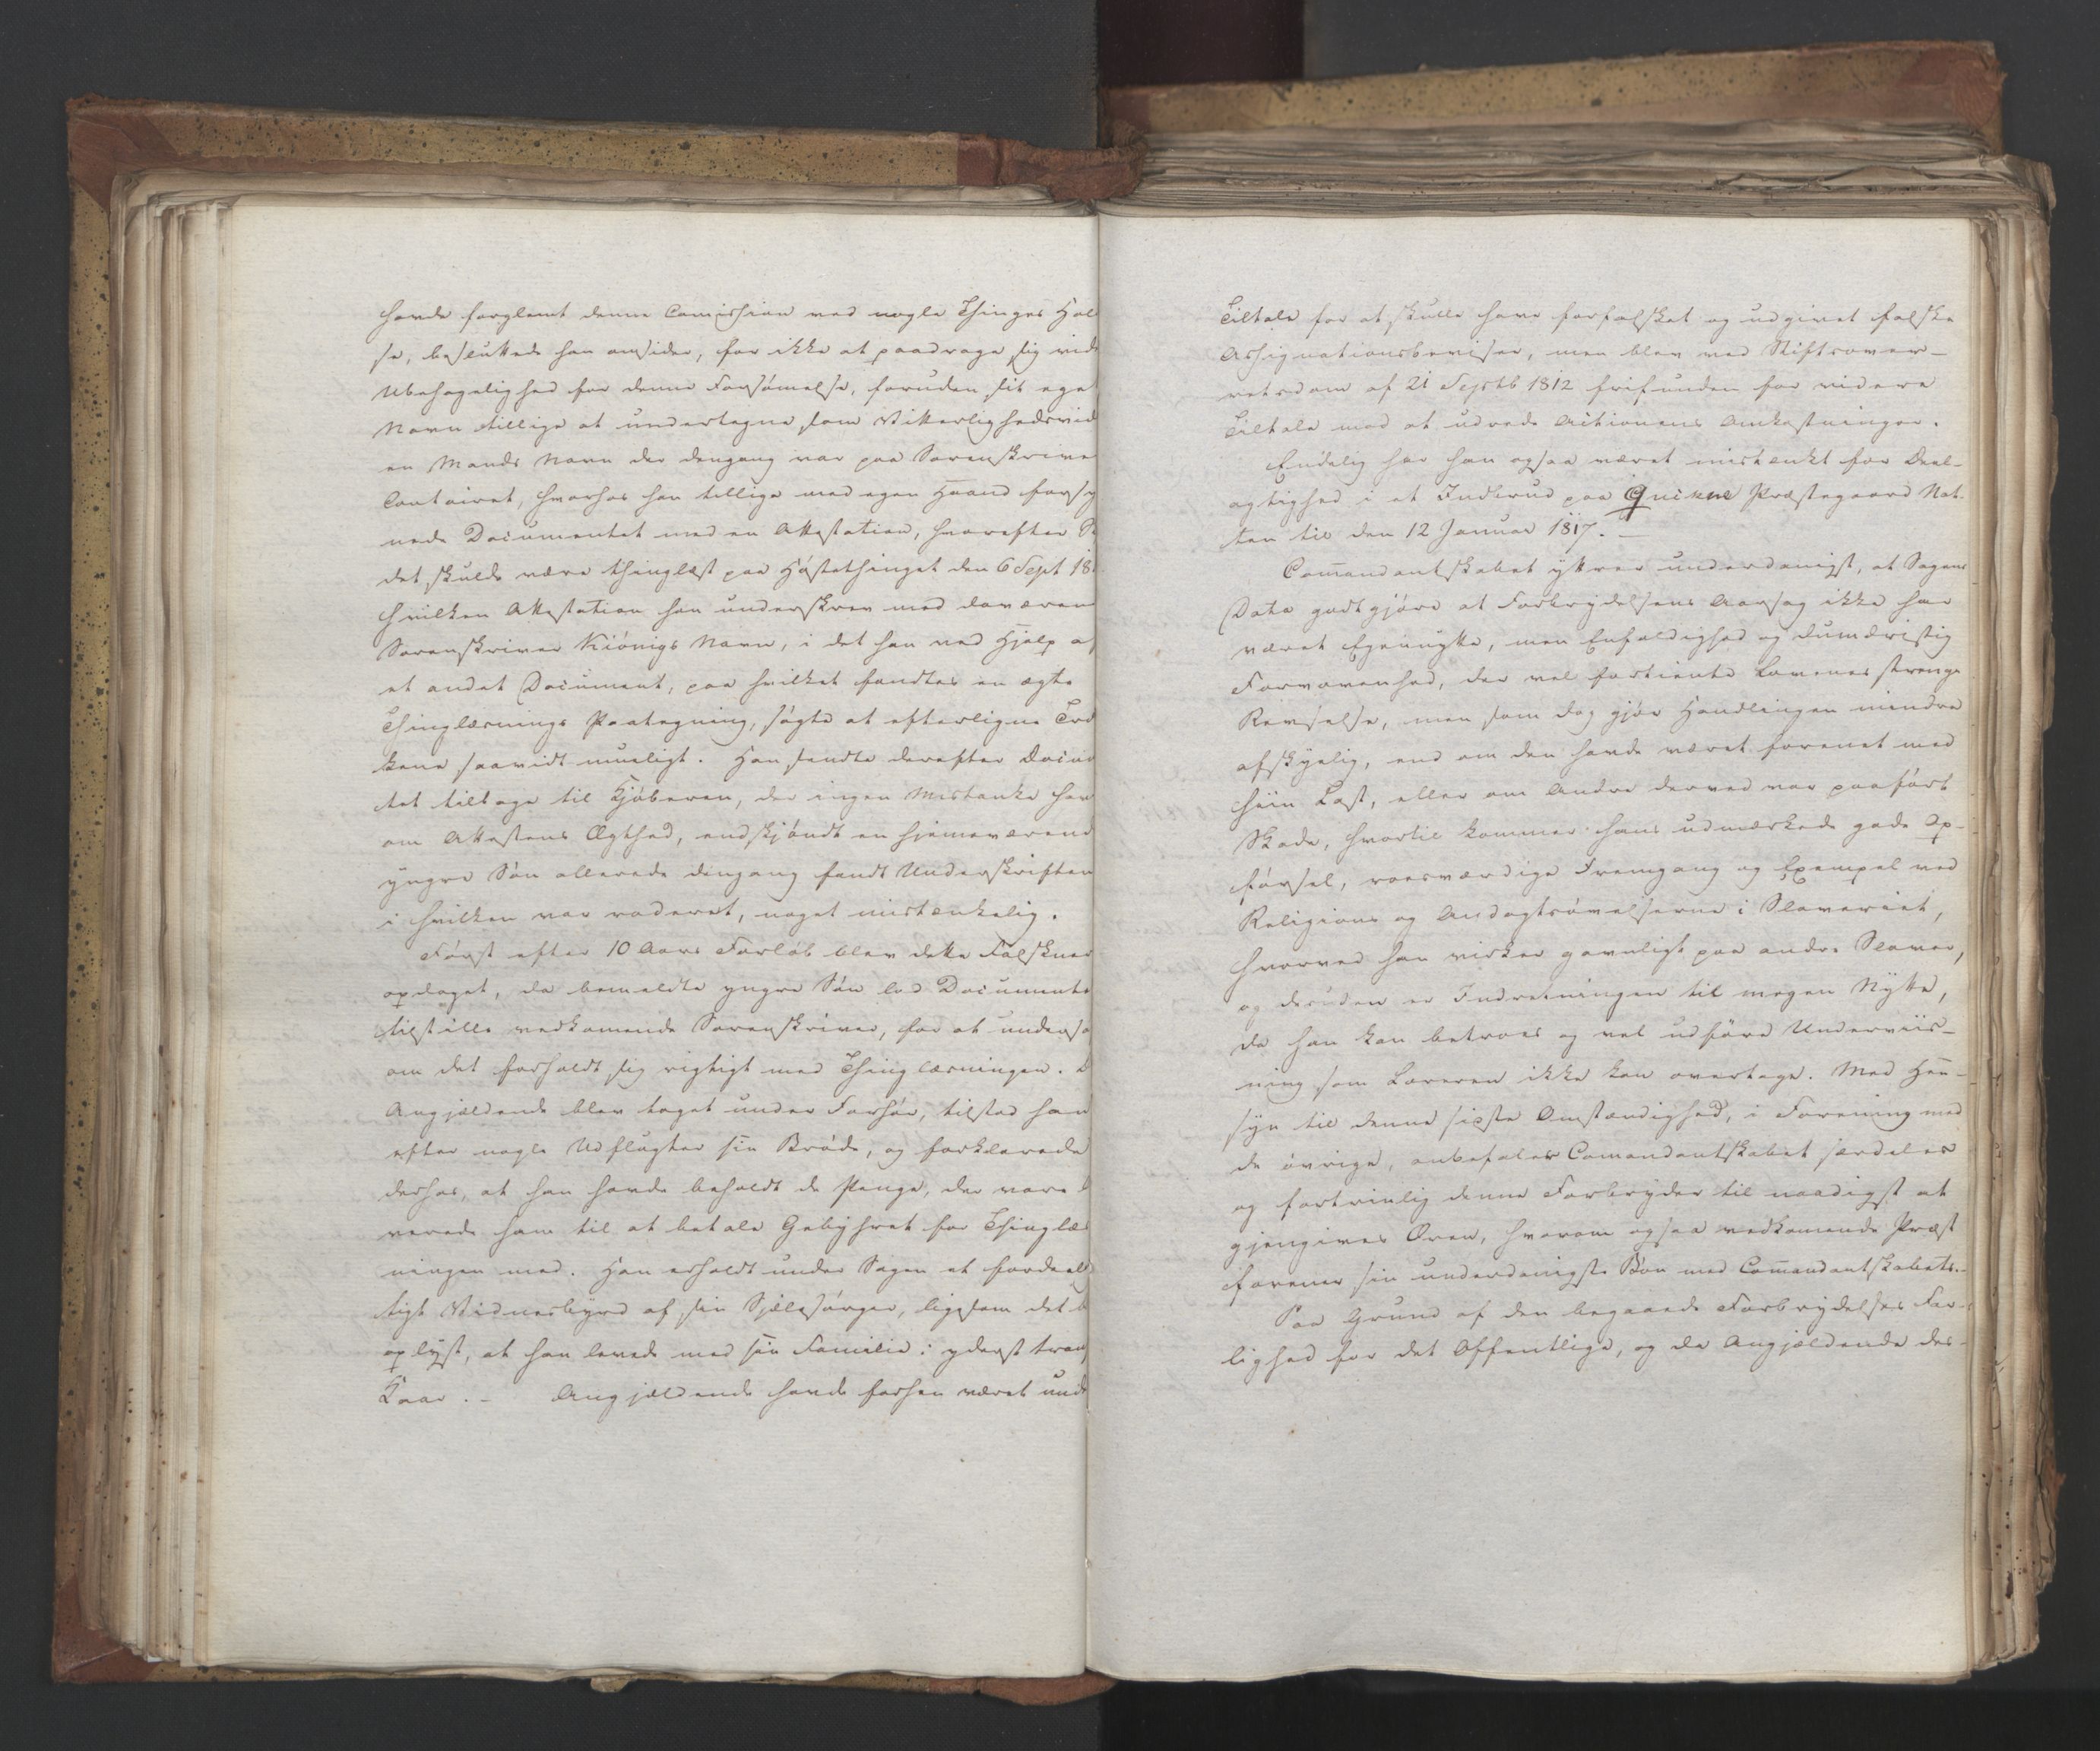 havde forglemt denne Comission ved nogle Thinges Hol
se, besluttede han omsider, for ikke at paadrage sig vid
Ubehagelighed for denne Forsömelse, foruden sit eget
Navn tillige at undertegne som Vitterlighedsvid
en Mands Navn der dengang var paa Sorenskrive
Contoiret, hvorhos han tillige med egen Haand forsy
nede Documentet med en Attestation, hvorefter S
det skulde være thinglæst paa Höstethinget den 6 Sept 18
hvilken Attestation han underskrev med daværen
Sorenskriver Kiönigs Navn, i det han ved Hjælp af
et andet Document, paa hvilket fandtes en ægte
Thinglæsnings Paategning, sögte at efterligne Træ
kene saavidt mueligt. Han sendte derefter Docum
tet tilbage til Kjöberen, der ingen Mistanke hav
om Attestens Ægthed, endskjöndt en hjemeværend
yngre Sön allerede dengang fandt Underskriften
i hvilken var raderet, noget mistænkelig.
Först efter 10 Aars Forløb blev dette Falskner
opdaget, da bemeldte yngre Sön lod Documente
tilstille vedkomende Sorenskriver, for at undersø
om det forholdt sig rigtigt med Thinglæsningen. D
Angjældende blev taget under Forhör, tilstod han
efter nogle Udflugter sin Bröde, og forklarede
derhos, at han havde beholdt de Penge, der vare l
verede ham til at betale Gebyhret for Thinglæs
ningen med. Han erholdt under Sagen et fordeel
tigt Vidnesbyrd af sin Sjælesörger, ligesom det b
oplyst, at han levede med sin Familie i yderst trang
Kaar. - Angjældende havde forhen været und
Tiltale for at skulle have forfalsket og udgivet falske
Assignationsbeviser, men blev ved Stiftsover-
retsdom af 21 Septb 1812 frifunden for videre
Tiltale mod at udrede Actionens Omkostninger.
Endelig har han ogsaa været mistænkt for Deel-
agtighed i et Indbrud paa Qvikne Præstegaard Nat-
ten til den 12 Januar 1817. -
Comandantskabet yttrer underdanigst, at Sagens
Data godtgjöre at Forbrydelsens Aarsag ikke har
været Egennytte, men Enfoldighed og dumdristig
Forvovenhed, der vel fortiente Lovenes strenge
Revselse, men som dog gjör Handlingen mindre
afskyelig, end om den havde været forenet med
hiin Last, eller om Andre derved var paafört
Skade, hvortil kommer hans udmærkede gode Op-
försel, roesværdige Fremgang og Exempel ved
Religions og Andagtsövelserne i Slaveriet,
hvorved han virker gavnligt paa andre Slaver,
og desuden er Indretningen til megen Nytte,
da han kan betroes og vel udföre Underviis-
ning som Læreren ikke kan overtage. Med Hen-
syn til denne sidste Omstændighed, i Forening med
de övrige, anbefaler Comandantskabet særdeles
og fortrinlig denne Forbryder til naadigst at
gjengives Æren, hvorom ogsaa vedkomende Præst
forener sin underdanigste Bön med Comandantskabets.-
Paa Grund af den begaaede Forbrydelses Far-
lighed for det Offentlige, og da Angjældende des-